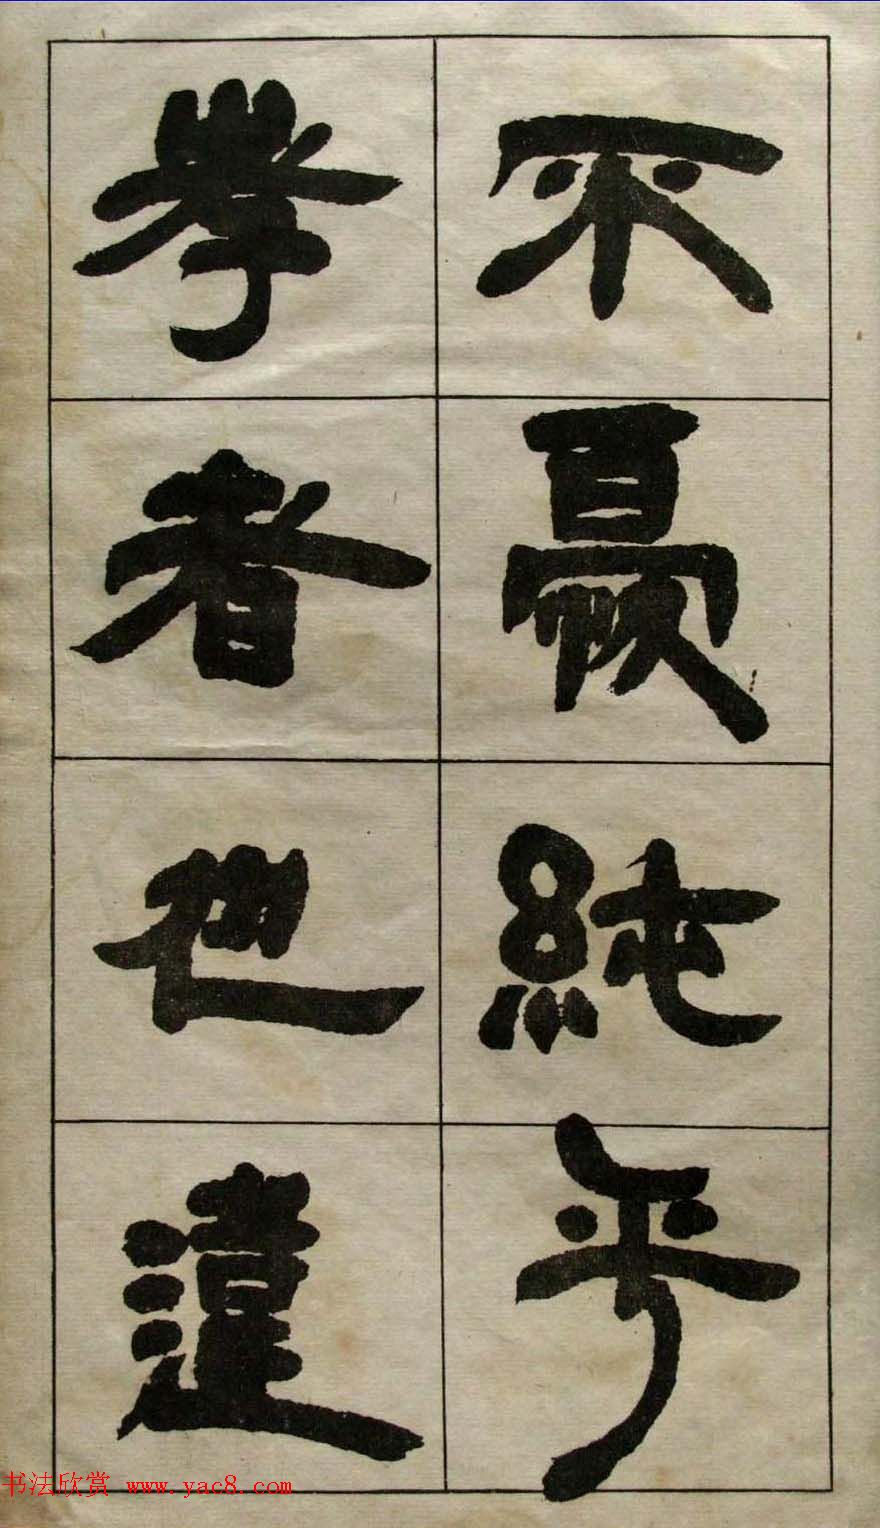 不憂純乎
孝者也違
书法欣赏 www.yac8.com